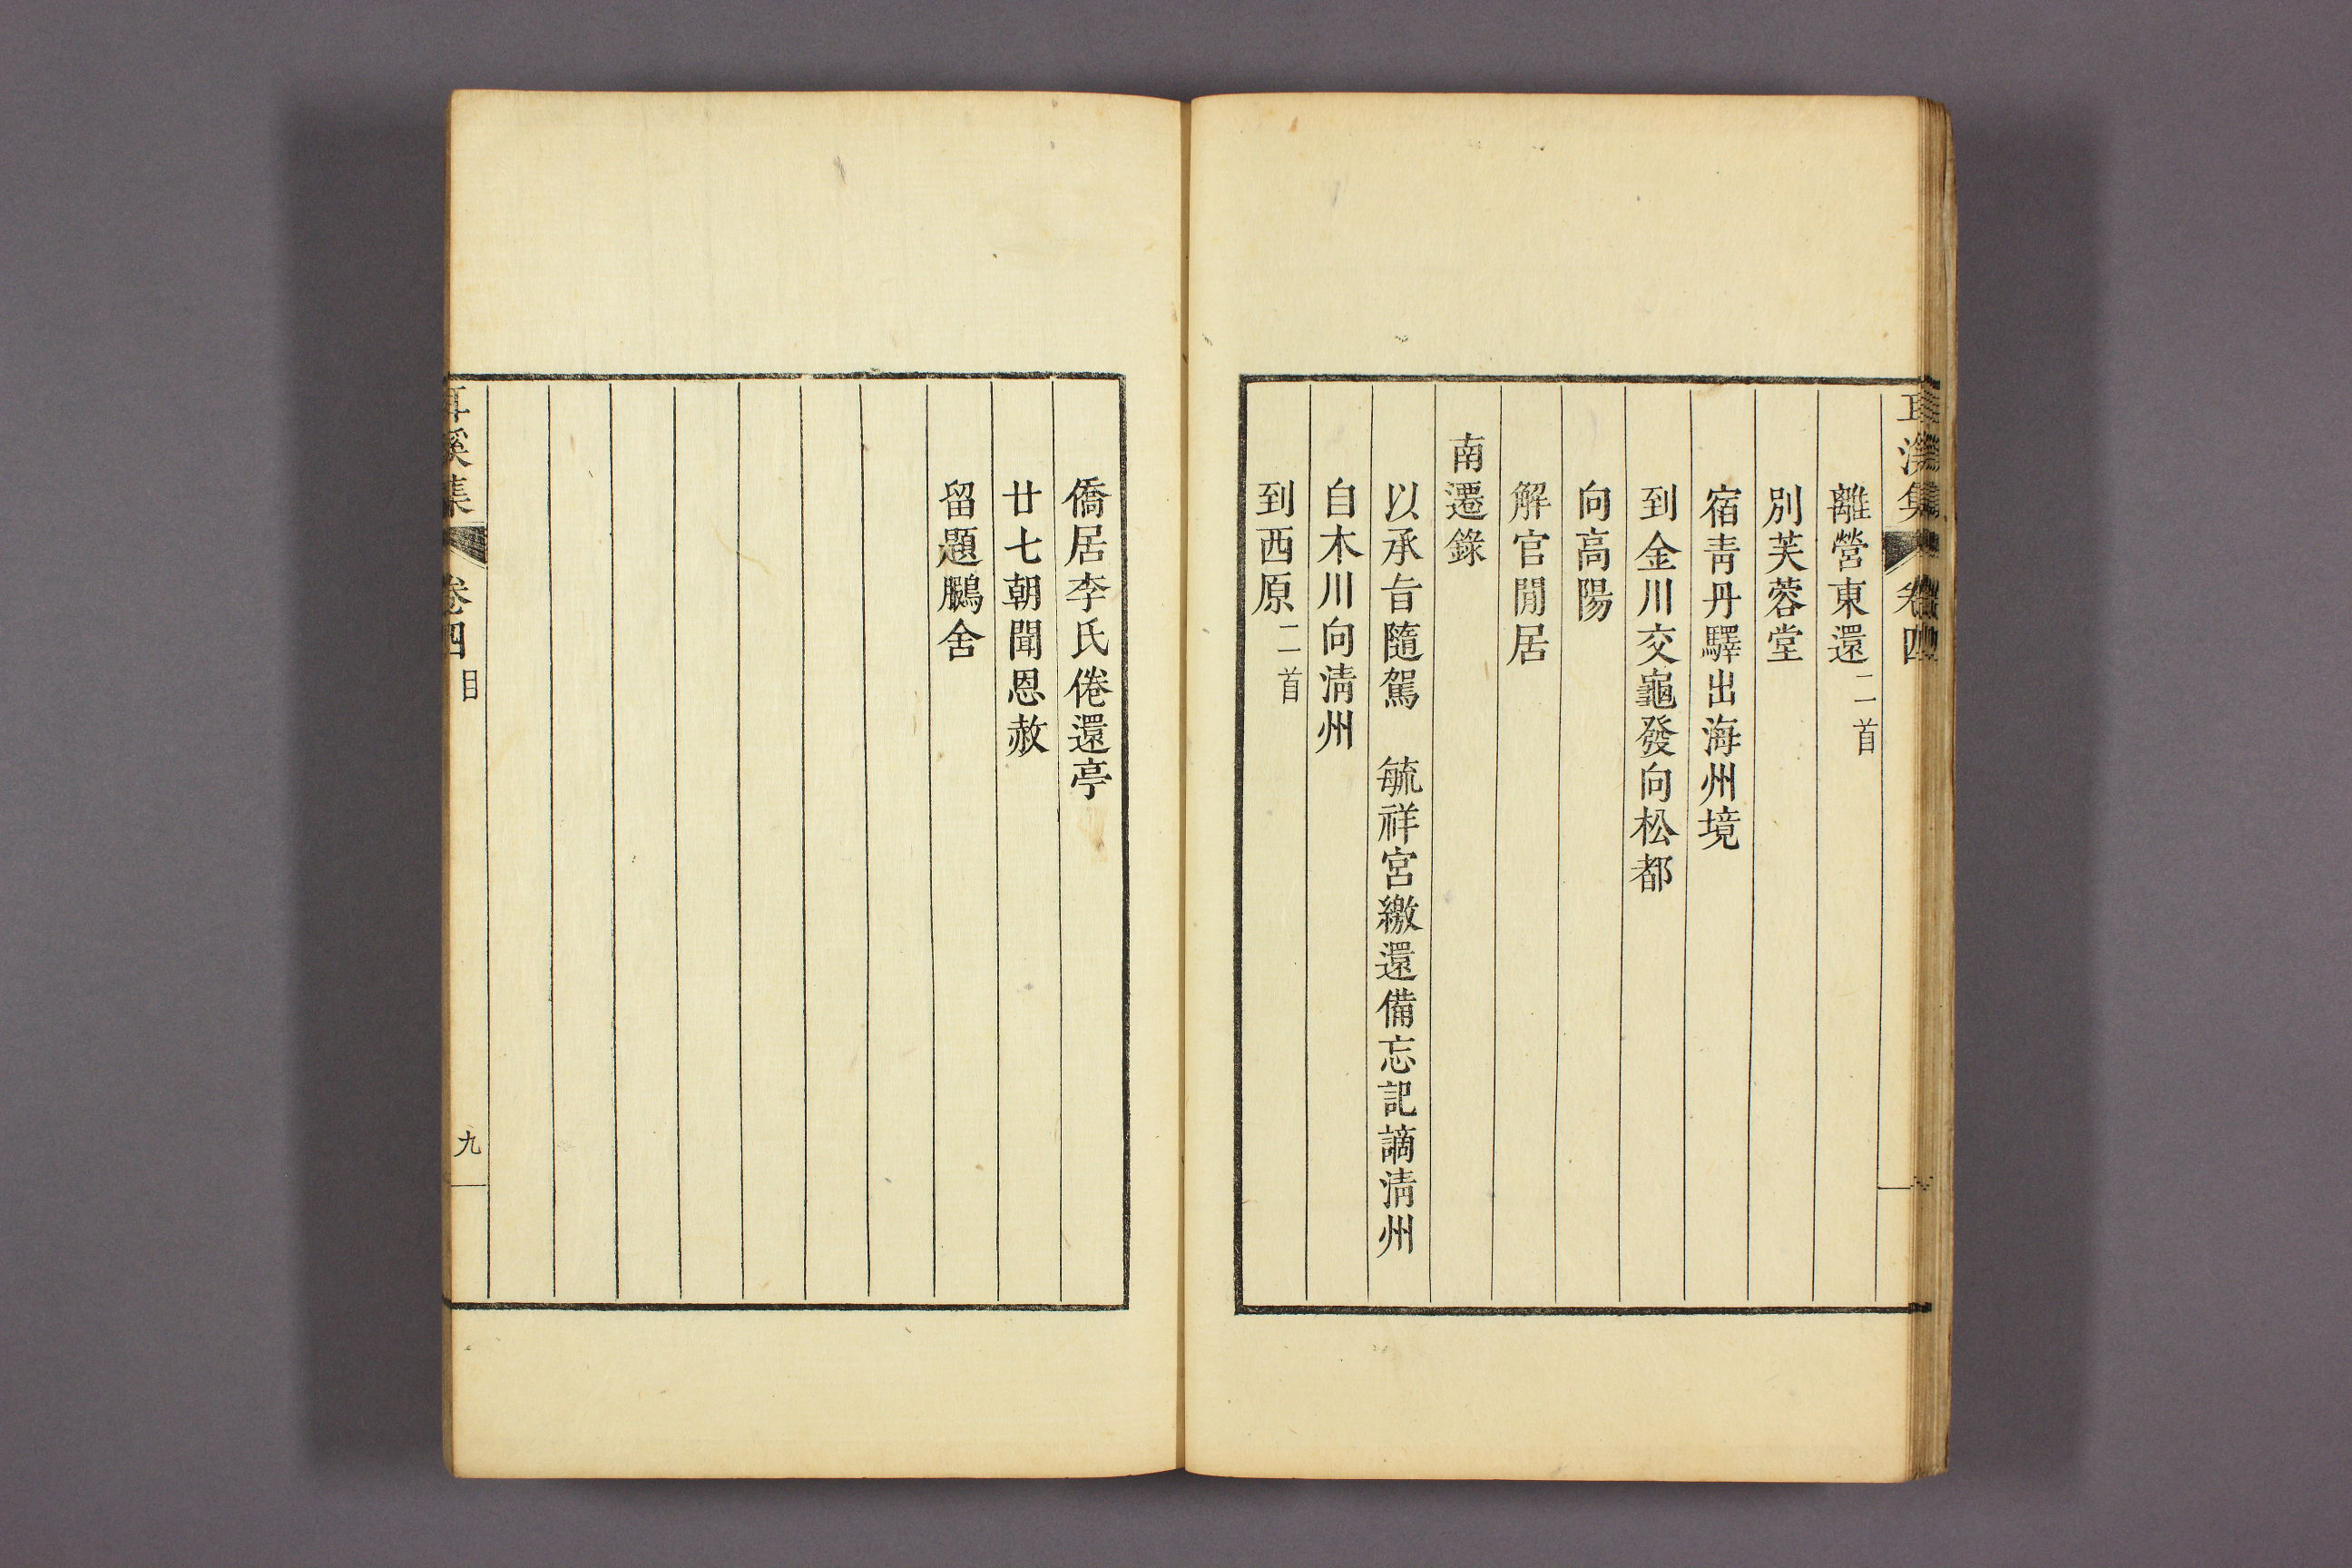 離營東還二首
別芙蓉堂
宿靑丹驛出海州境
到金川交龜發向松都
向高陽
解官閒居
南遷錄
以承旨隨駕　毓祥宮繳還備忘記謫淸州
自木川向淸州
到西原二首
僑居李氏倦還亭
廿七朝聞恩赦
留題鵩舍
集
卷四
目
九